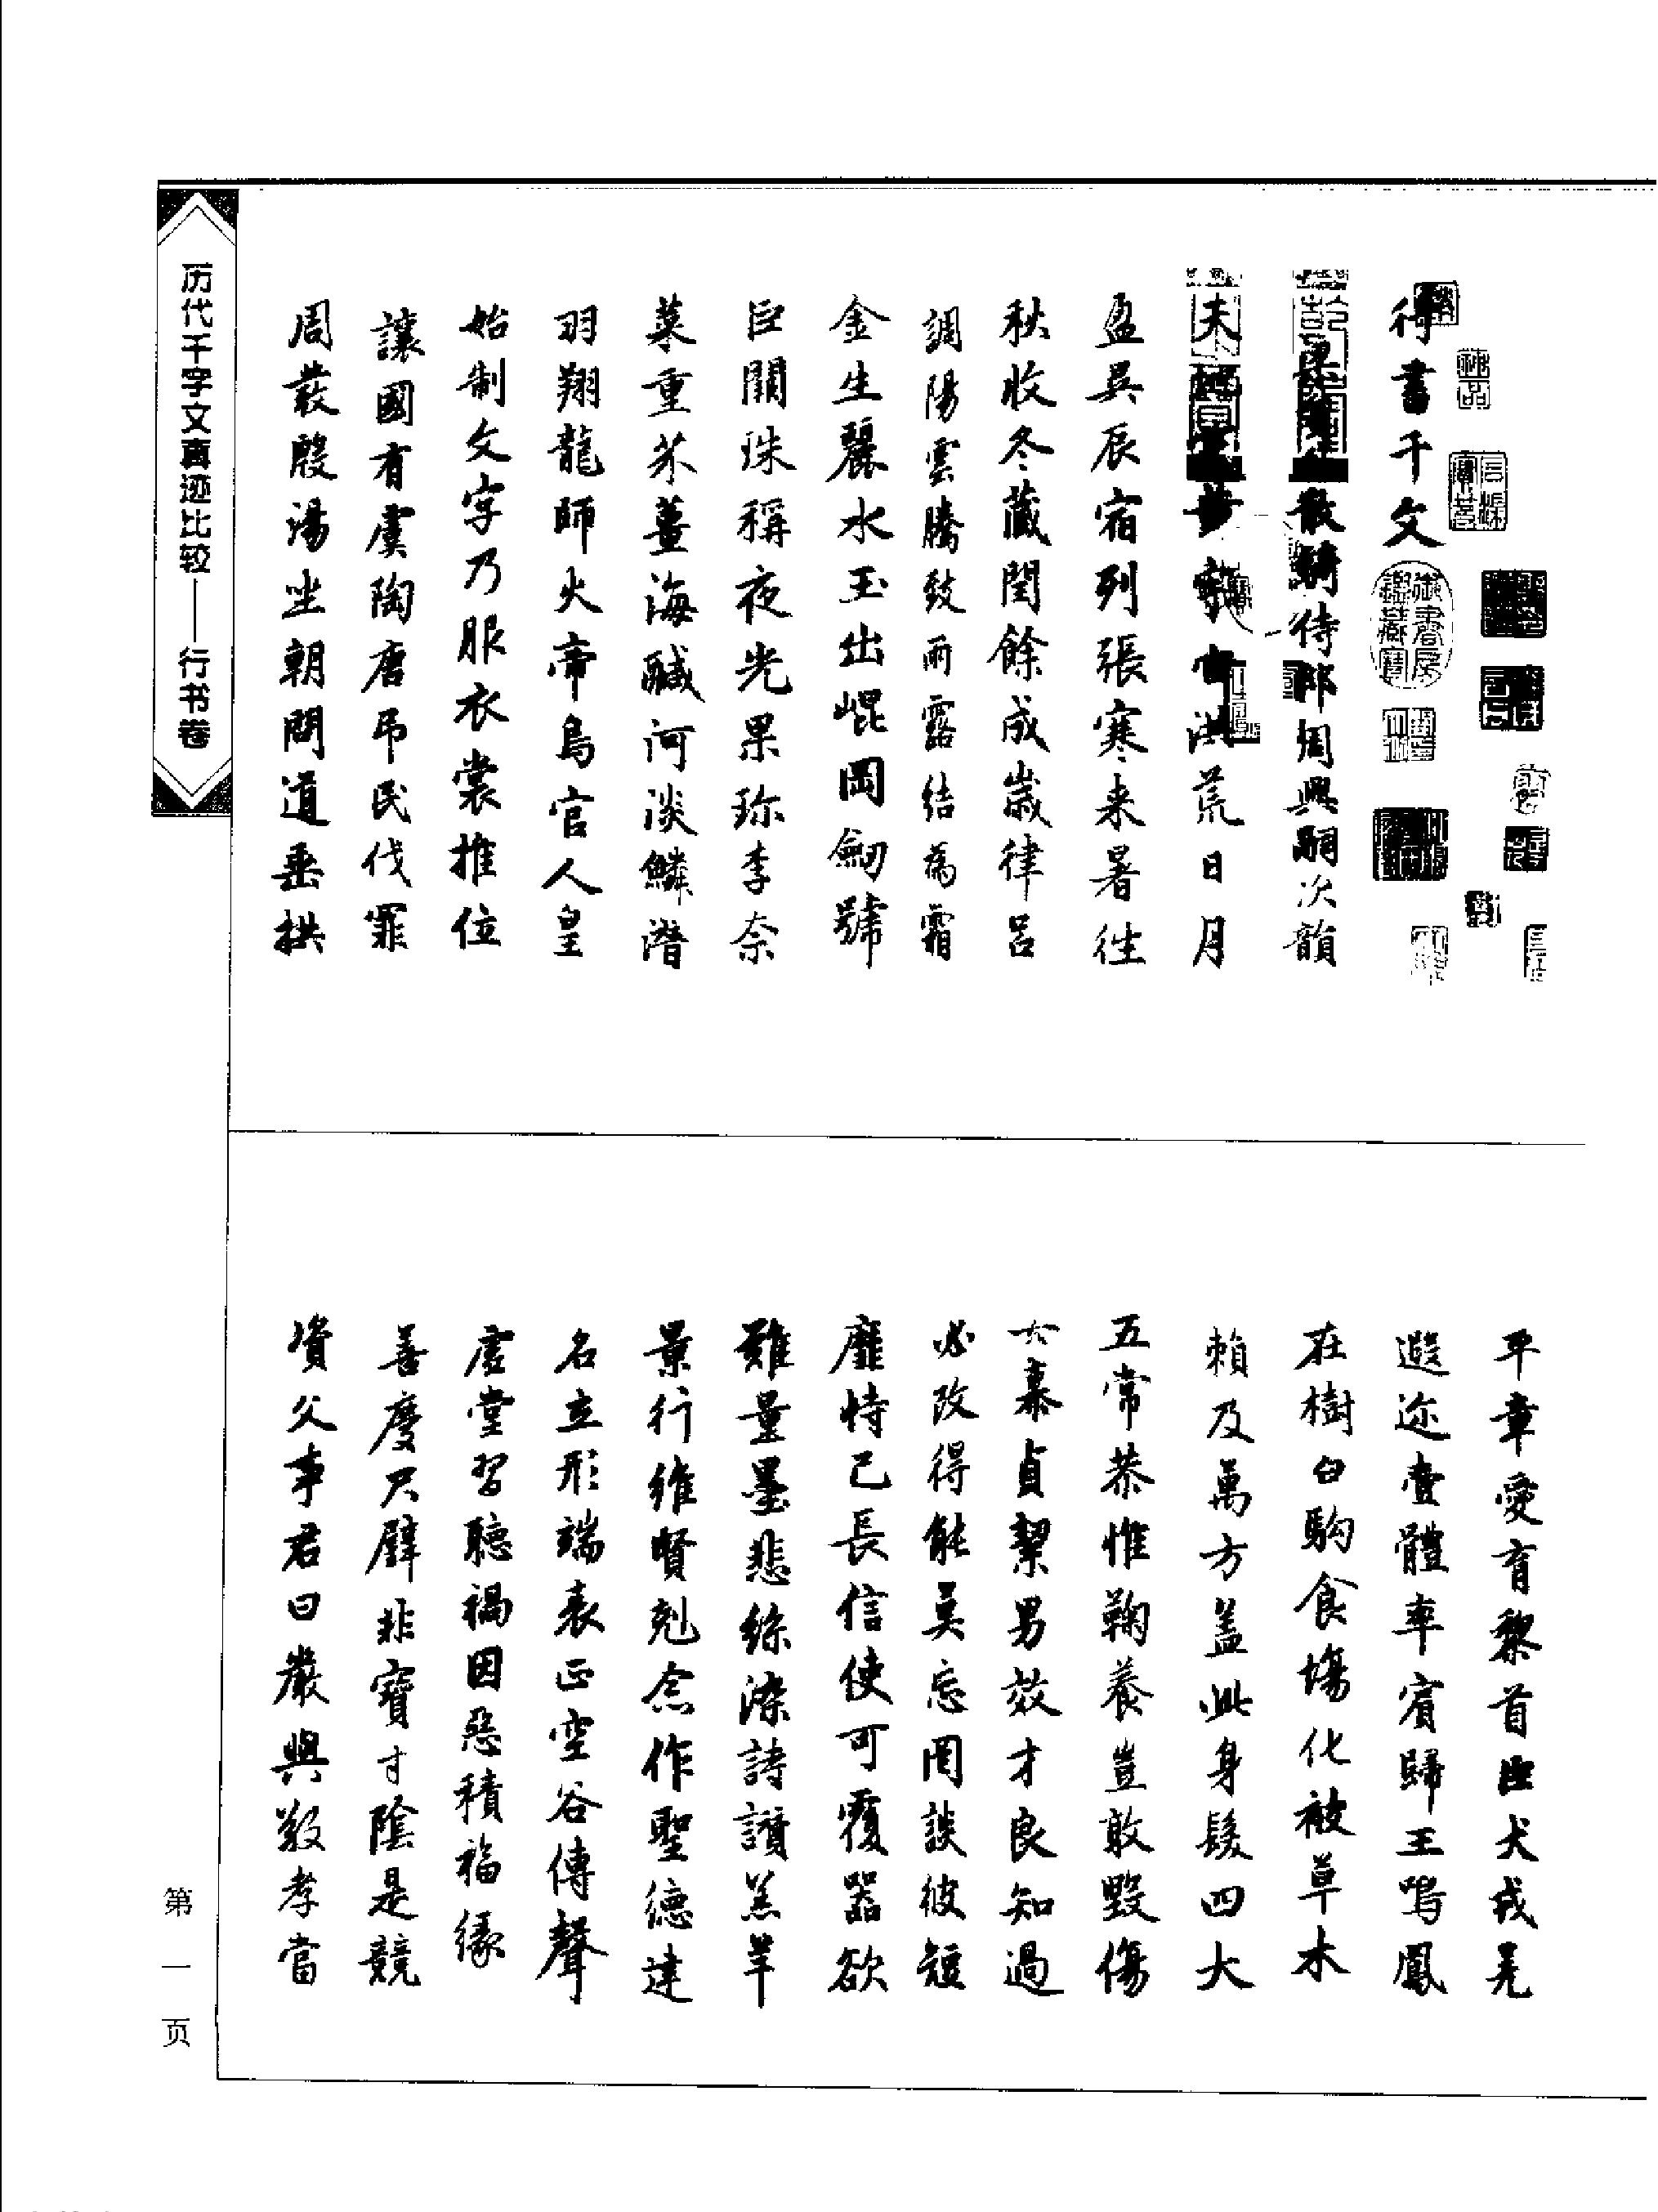 得書千文
散騎侍郎周興嗣次韻
洪荒日月
盈昃辰宿列張寒来暑往
秋收冬藏閏餘成歲律呂
調陽雲騰致雨露結為霜
金生麗水玉出崐岡劒號
巨闕珠稱夜光果珎李奈
菜重芥薑海醎河淡鱗潛
羽翔龍師火帝鳥官人皇
始制文字乃服衣裳推位
讓國有虞陶唐弔民伐罪
周發殷湯坐朝問道垂拱
平章愛育黎首臣犬戎羌
遐迩壹體率賓歸王鳴鳳
在樹白駒食場化被草木
賴及萬方盖此身髮四大
五常恭惟鞠養豈敢毀傷
女慕貞絜男效才良知過
必改得能莫忘罔談彼短
靡恃己長信使可覆器欲
難量墨悲絲染詩讚羔羊
景行維賢剋念作聖德建
名立形端表正空谷傳聲
虛堂習聽禍因惡積福緣
善慶尺璧非寶寸陰是競
資父事君曰嚴與敬孝當
历代千字文真迹比较——行书卷
第一页